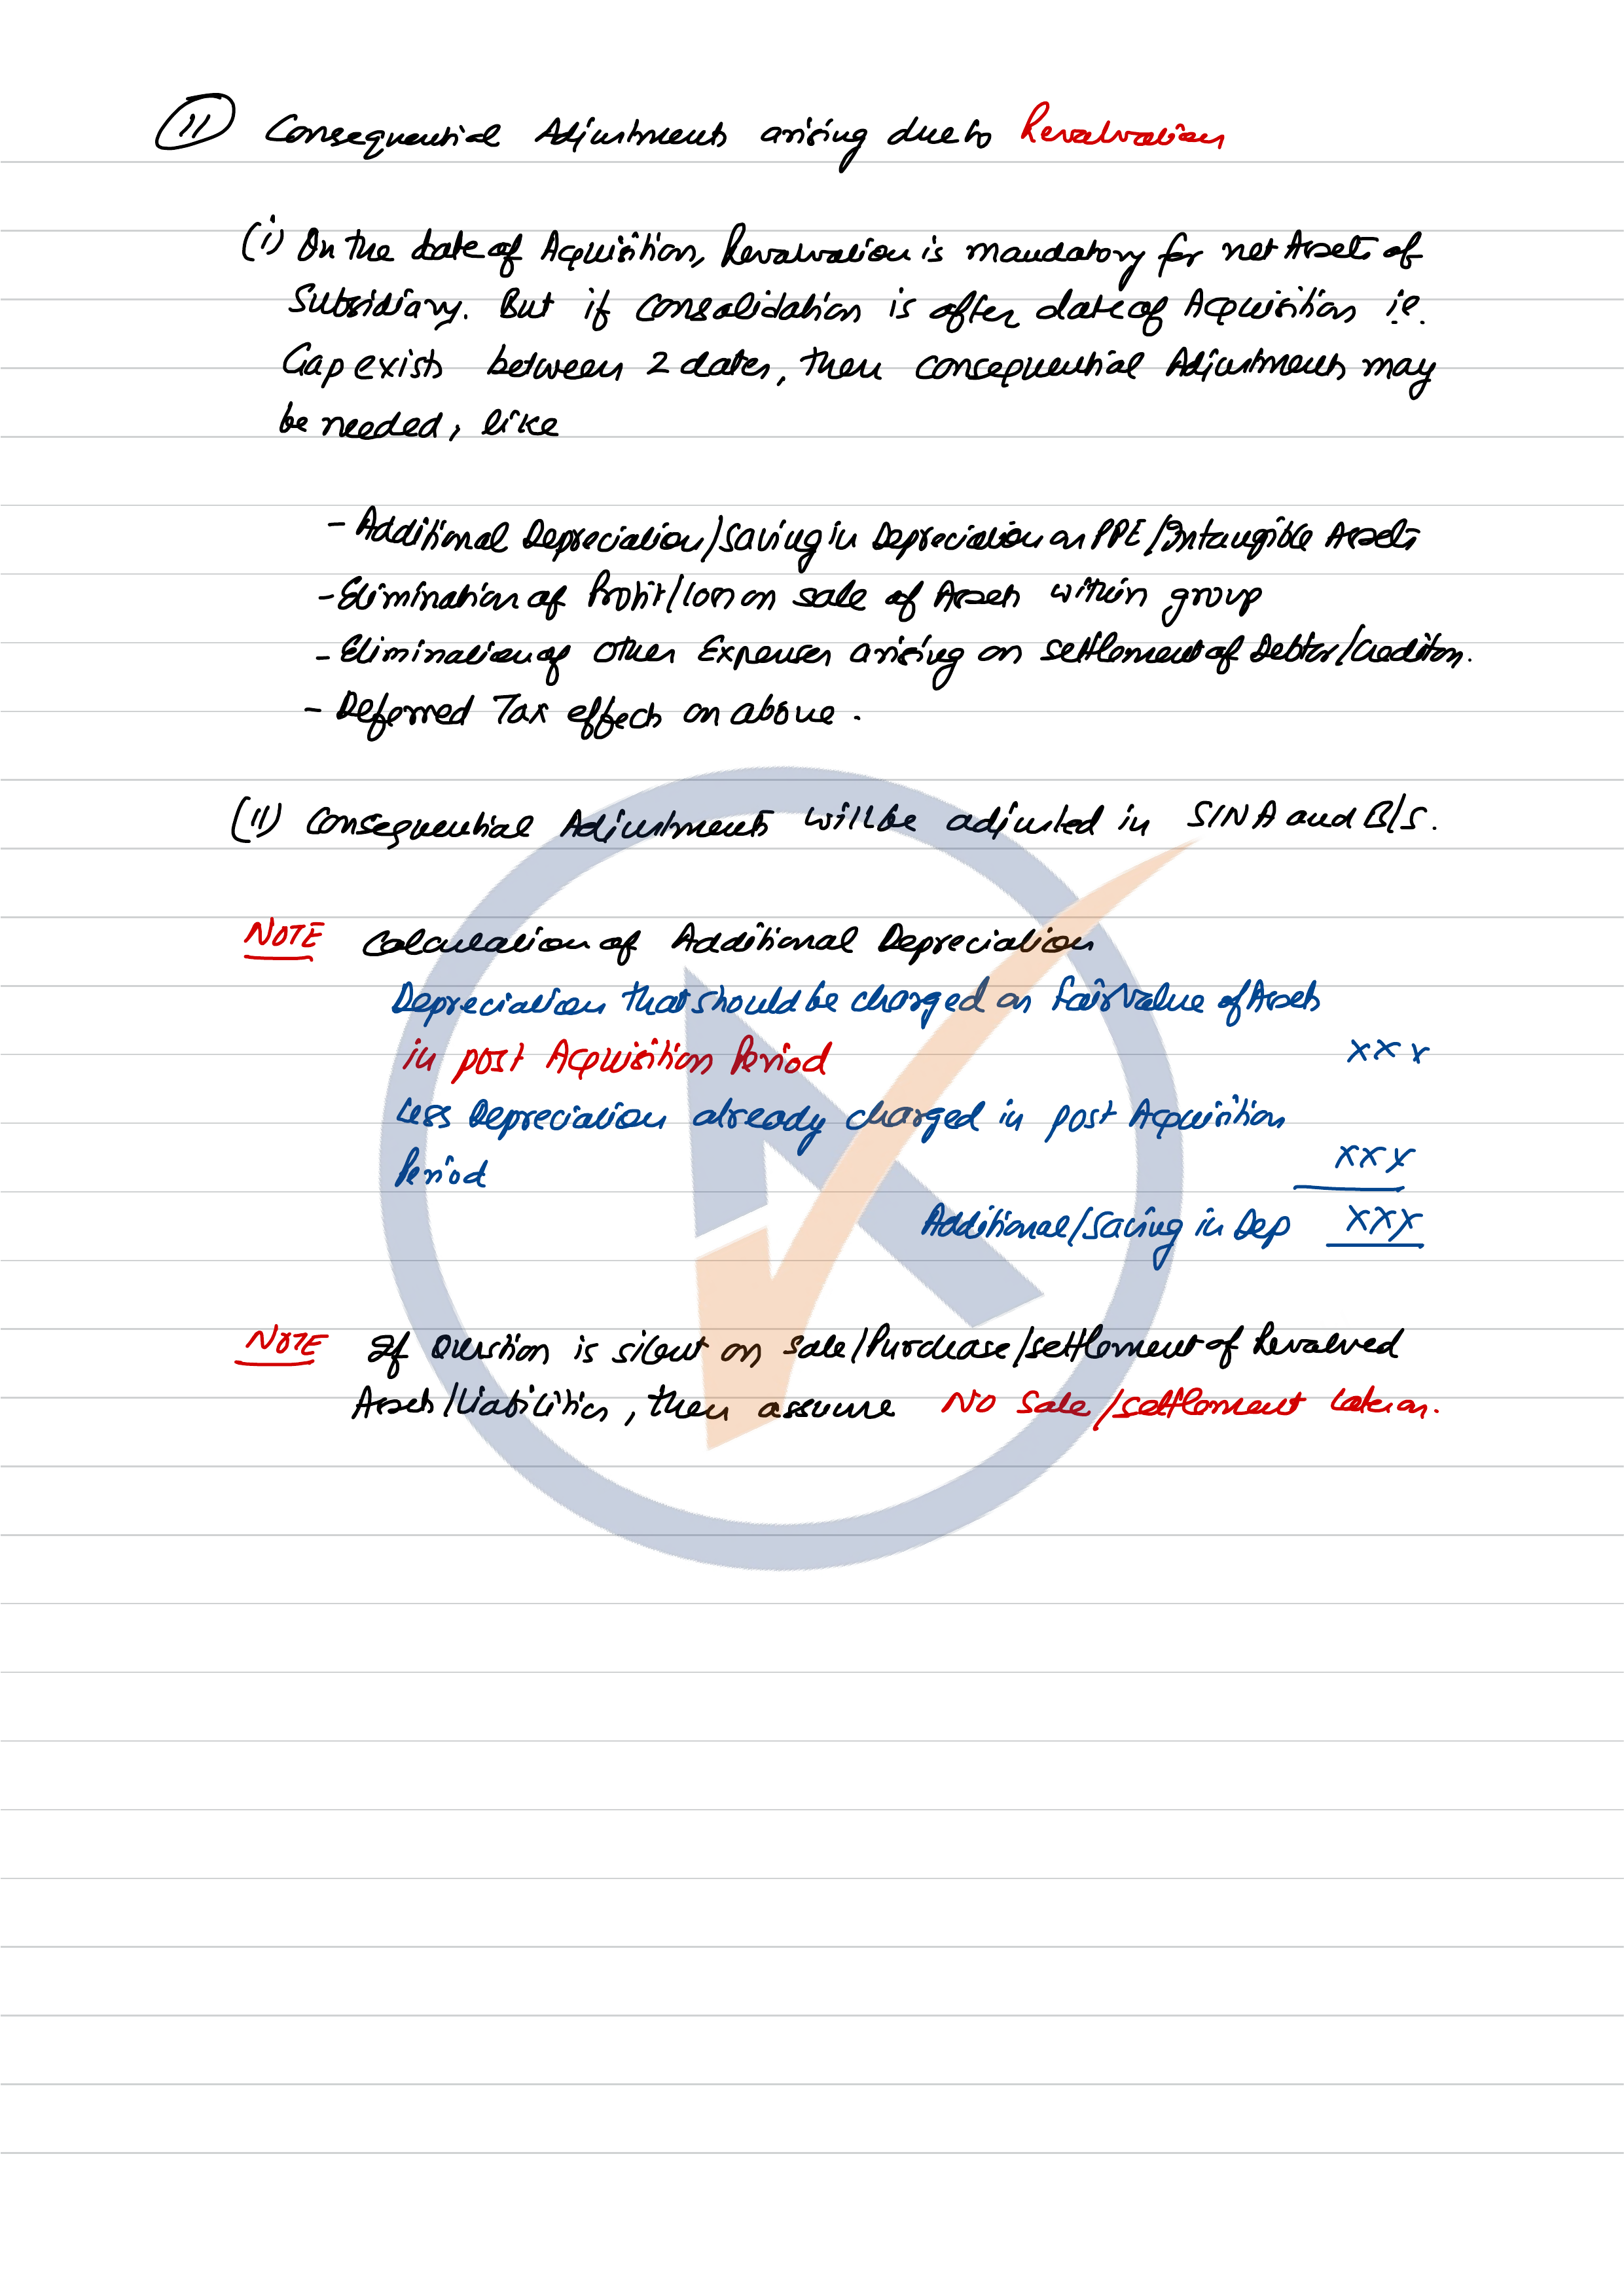 11 Consequential Adjustments arising due to Revaluation
(i) On the date of Acquisition, Revaluation is mandatory for net Assets of
Subsidiary. But if consolidation is after date of Acquisition i.e.
Gap exists between 2 dates, then consequential Adjustments may
be needed, like
- Additional Depreciation/Saving in Depreciation on PPE/Intangible Assets
- Elimination of Profit/loss on sale of Assets within group
- Elimination of other Expenses arising on settlement of Debtor/Creditors.
- Deferred Tax effects on above.
(ii) Consequential Adjustments will be adjusted in SINA and B/S.
NOTE Calculation of Additional Depreciation
Depreciation that should be charged on Fair Value of Assets
in post Acquisition Period xxx
Less Depreciation already charged in post Acquisition
Period xxx
Additional/Saving in Dep xxx
NOTE If Question is silent on Sale/Purchase/settlement of Revalued
Assets/Liabilities, then assume No Sale/settlement later on.